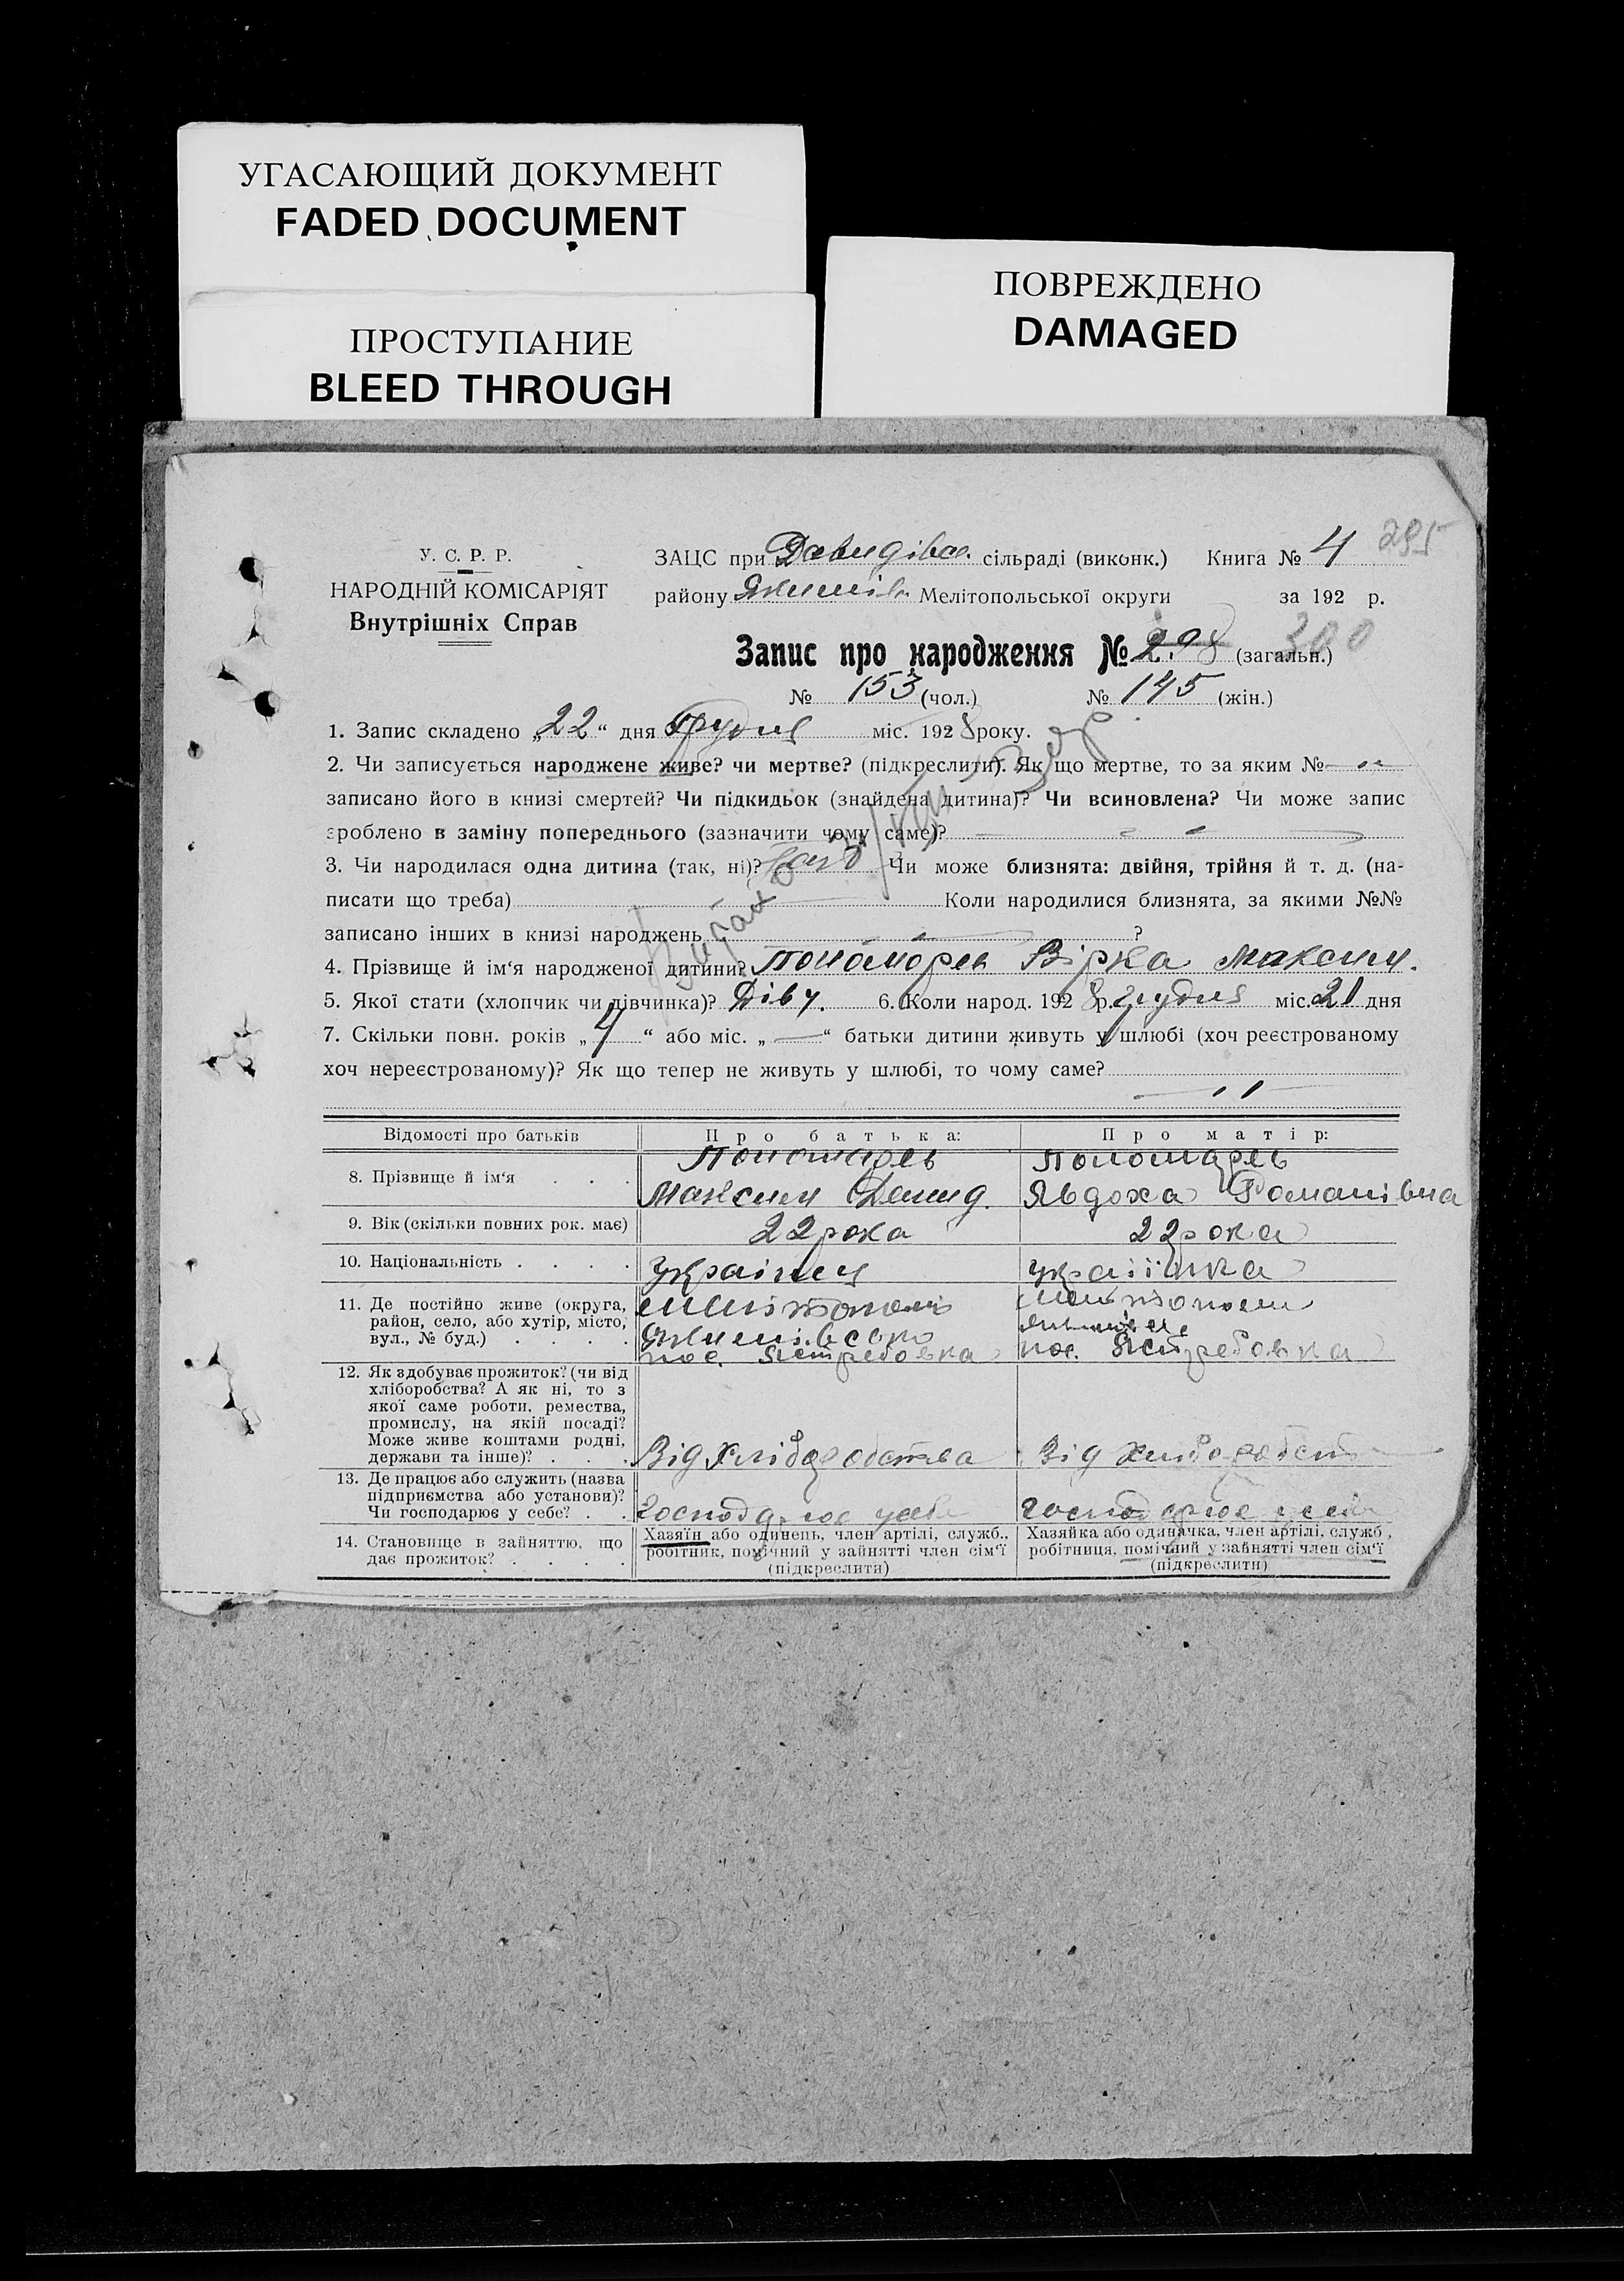 УГАСАЮЩИЙ ДОКУМЕНТ
FADED DOCUMENT
ПРОСТУПАНИЕ
BLEED THROUGH
ПОВРЕЖДЕНО
DAMAGED
295
У. С. Р. Р.
НАРОДНІЙ КОМІСАРІЯТ
Внутрішніх Справ
ЗАЦС при Давидівс. сільраді (виконк.) Книга № 4
району Якимів. Мелітопольської округи за 192 р.
300
Запис про народження № 298 (загальн.)
№ 153 (чол.) № 145 (жін.)
1. Запис складено „22“ дня Грудня міс. 1928 року.
2. Чи записується народжене живе? чи мертве? (підкреслити). Як що мертве, то за яким №
записано його в книзі смертей? Чи підкидьок (знайдена дитина)? Чи всиновлена? Чи може запис
зроблено в заміну попереднього (зазначити чому саме)?
3. Чи народилася одна дитина (так, ні)? Чи може близнята: двійня, трійня й т. д. (на-
писати що треба) Коли народилися близнята, за якими №№
записано інших в книзі народжень ?
4. Прізвище й ім‘я народженої дитини? Пономарев Вірка Максим.
5. Якої стати (хлопчик чи дівчинка)? Дівч. 6. Коли народ. 1928 р. грудня міс. 21 дня
7. Скільки повн. років „4“ або міс. „—“ батьки дитини живуть у шлюбі (хоч реєстрованому
хоч нереєстрованому)? Як що тепер не живуть у шлюбі, то чому саме?
Відомості про батьків
Про батька:
Про матір:
8. Прізвище й ім‘я . . .
Пономарев
Максим Демид.
Пономарев
Явдоха Романівна
9. Вік (скільки повних рок. має)
22 рока
22 рока
10. Національність . . . .
Українец
українка
11. Де постійно живе (округа,
район, село, або хутір, місто,
вул., № буд.) . . . .
Якимівсько
пос. Ястребовка
пос. Ястребовка
12. Як здобуває прожиток? (чи від
хліборобства? А як ні, то з
якої саме роботи, ремества,
промислу, на якій посаді?
Може живе коштами родні,
держави та інше)? . . .
Від Хліборобства
Від Хліборобст
13. Де працює або служить (назва
підприємства або установи)?
Чи господарює у себе? . .
Господарює у себе
господарює у себе
14. Становище в зайняттю, що
дає прожиток? . . . .
Хазяїн або одинець, член артілі, служб.,
робітник, помічний у зайнятті член сім‘ї
(підкреслити)
Хазяйка або одиначка, член артілі, служб.,
робітниця, помічний у зайнятті член сім‘ї
(підкреслити)